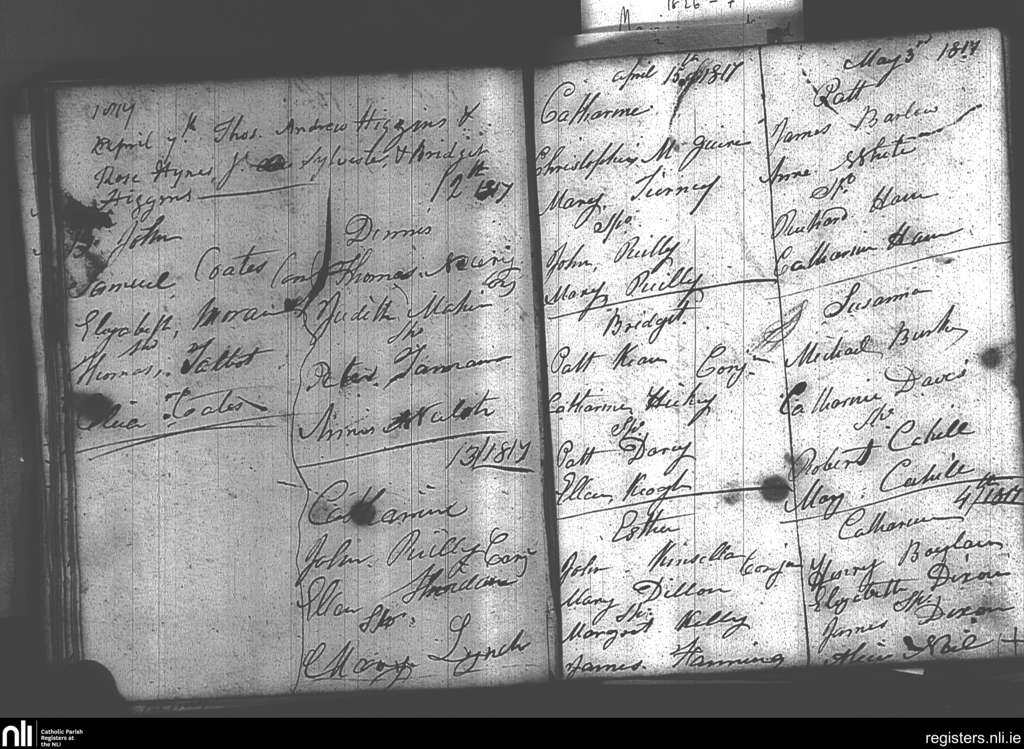 1826 - 7
1817
April 7th Thos. Andrew Higgins &
Rose Hynes Sylvester & Bridget
Higgins
John
Samuel Coates Conj
Elizabeth, Moran
Sps
Thomas, Talbot
Coates
12th 1817
Dinnis
Thomas
Judith Maher
Sps
Peter
Walsh
13/1817
Catharine
John. Reilly Conj
Ellen Sheridan
Sps.
Mary Lynch
April 15th 1817
Catharine
McGuire
Mary, Tierney
Sps.
John, Reilly
Mary Reilly
Bridget
Patt Kean Conj.
Catharine Hicky
Sps.
Patt Darcy
Ellen, Keogh
Esther
John Kinsella
Mary Dillon
Sps.
Margret Kelly
James. Fanning
May 3rd 1817
Patt
James Barlow
Anne White
Sps.
Richard
Catharine
Susanna
Michael Burk
Catharine Davis
Sps.
Robert Cahill
Mary. Cahill
4th 1817
Catharine
Henry Boylan
Elizabeth Dixon
Sps.
James Dixon
Neil
nli
Catholic Parish
Registers at
the NLI
registers.nli.ie